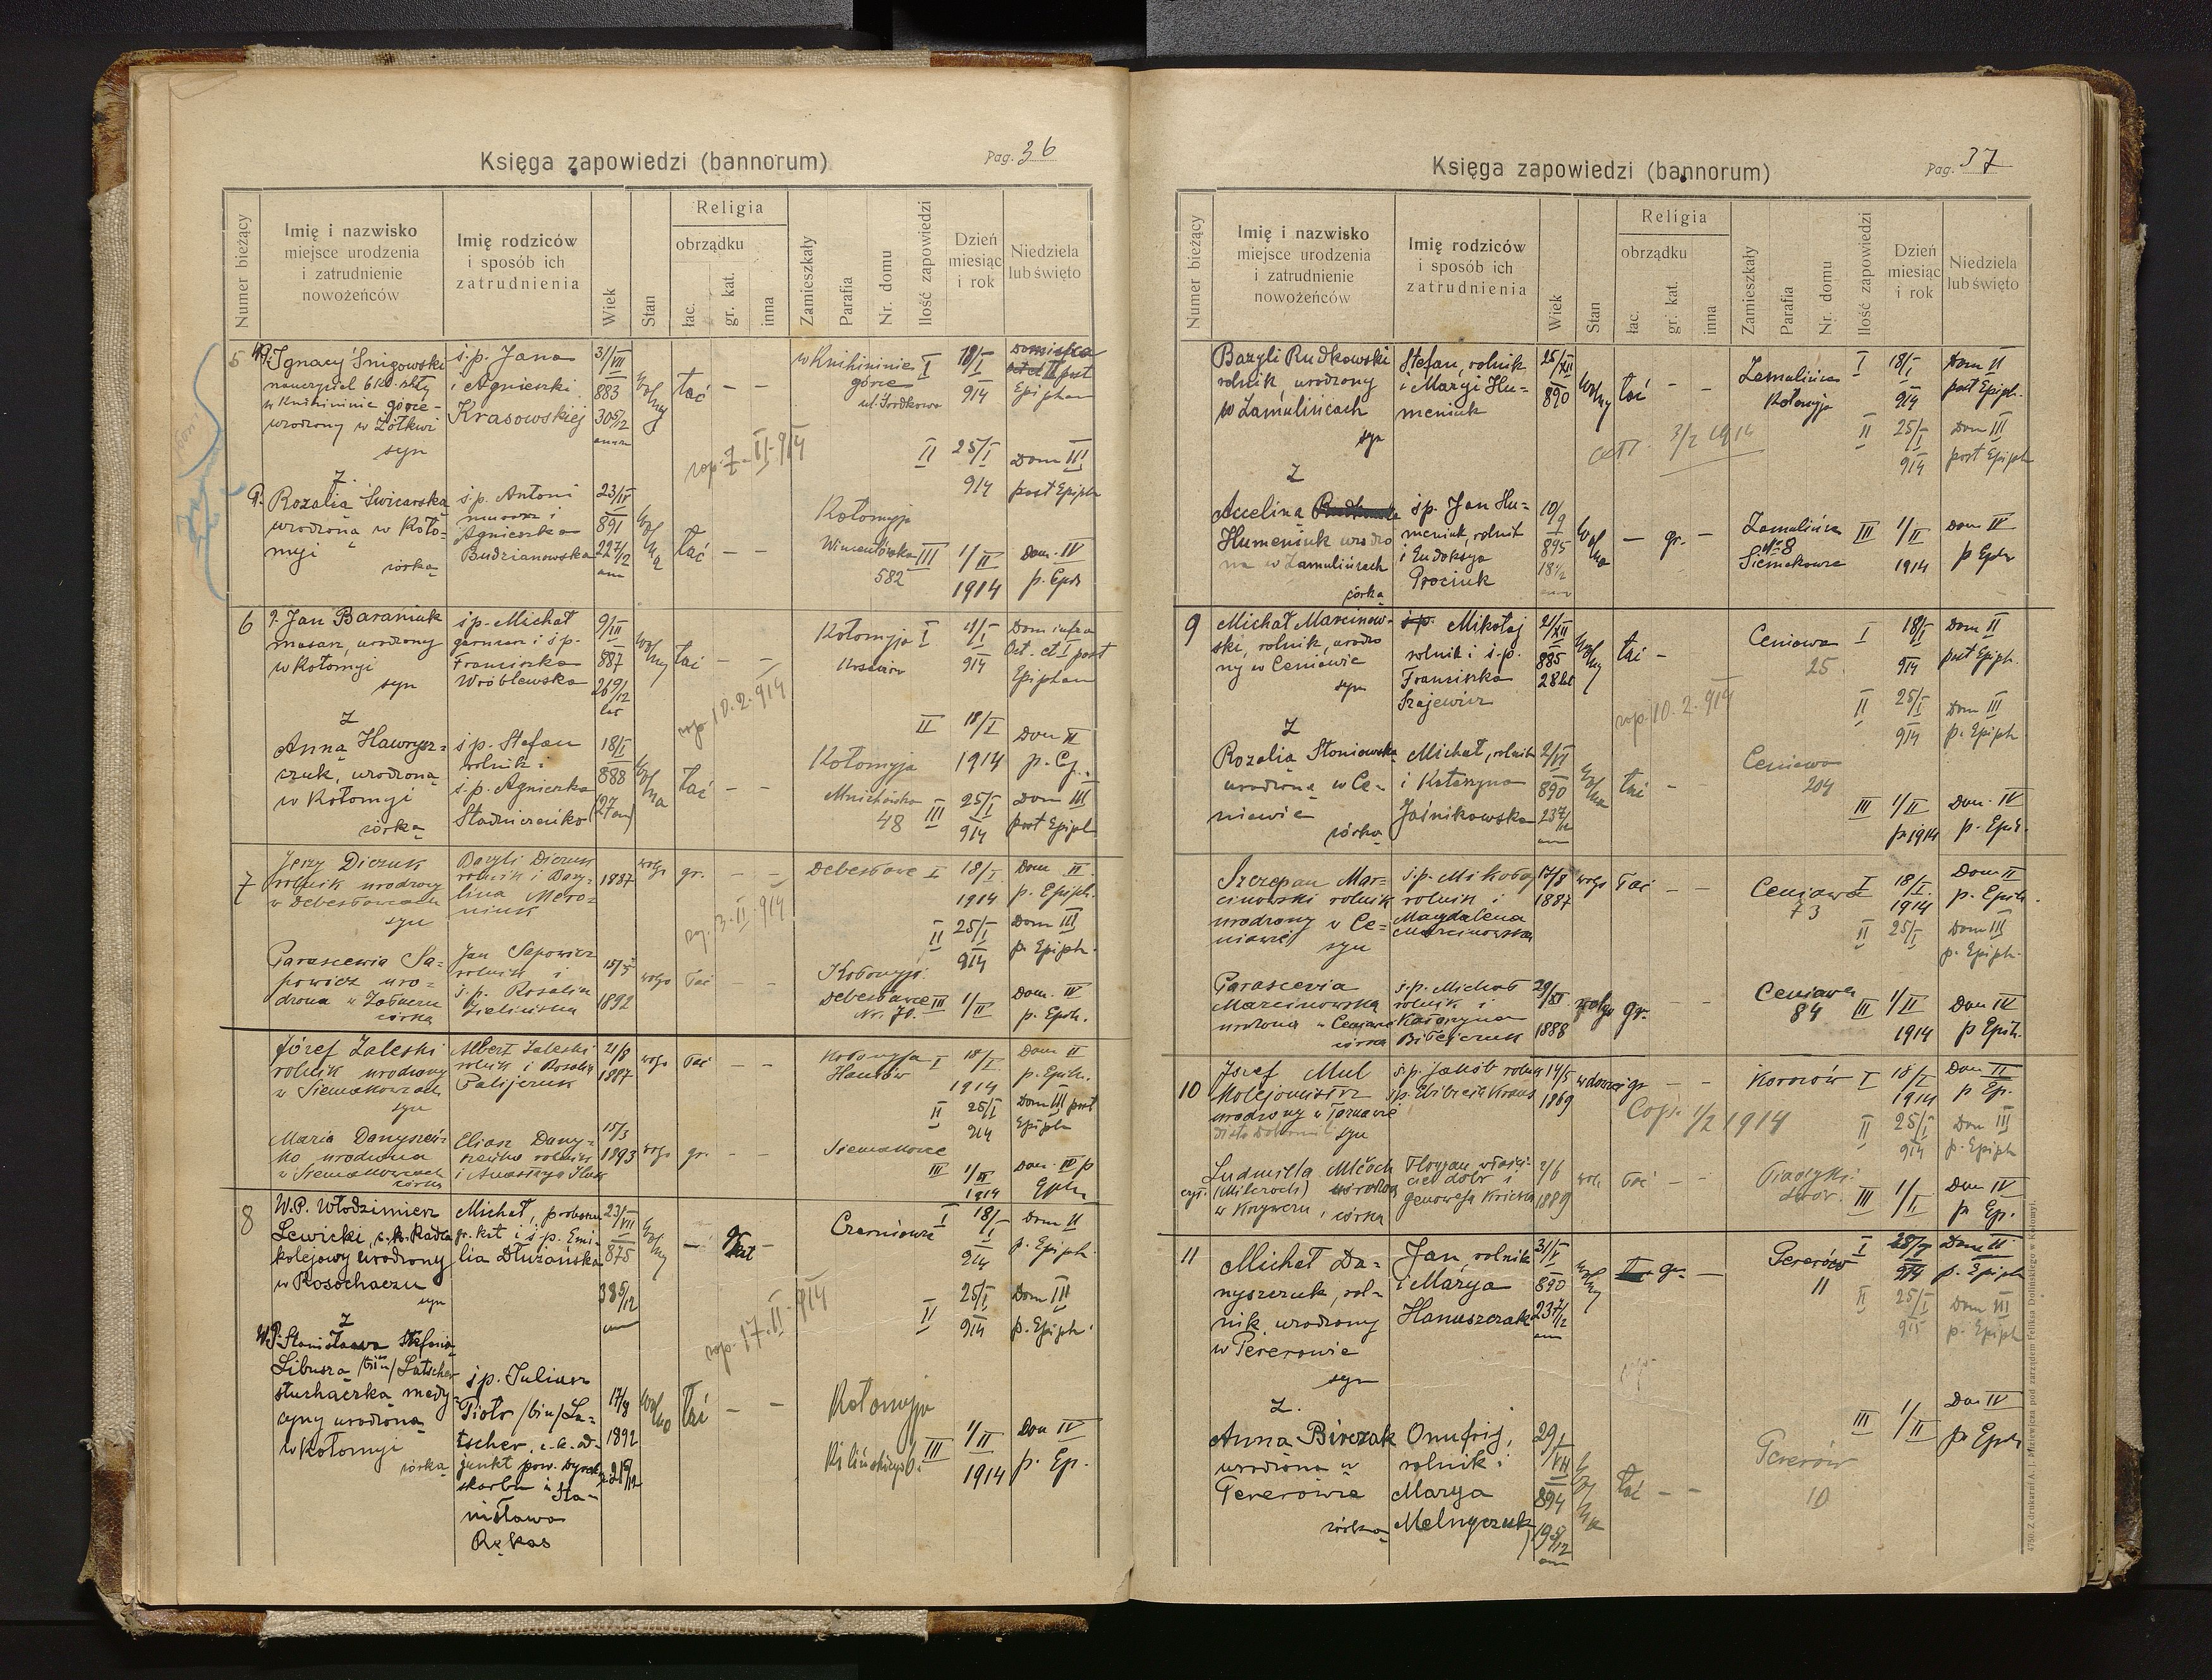 Księga zapowiedzi (bannorum)
Pag. 36
Numer bieżący
Imię i nazwisko
miejsce urodzenia
i zatrudnienie
nowożeńców
Imię rodziców
i sposób ich
zatrudnienia
Wiek
Stan
Religia
obrządku
łac.
gr. kat.
inna
Zamieszkały
Parafia
Nr. domu
Ilość zapowiedzi
Dzień
miesiąc
i rok
Niedziela
lub święto
5
Ignacy Śnigowski
nauczyciel
w Knihininie górce
urodzony w Żółkwi
syn
ś.p. Jana
i Agnieszki
Krasowskiej
31/VII
883
30 5/12
wolny
łać — —
w Knihininie
górce
I 18/I 914
Epiphan
II 25/I 914 Dom III post Epiph
cop. 7-II-914
Z
Rozalia Świcarska
urodzona w Koło-
myji
córka
ś.p. Antoni
murarz i
Agnieszka
Budzianowska
23/IV
891
22 7/12
wolna
łać — —
Kołomyja
582
III 1/II 1914 Dom. IV p. Eph
6
Jan Baraniuk
masarz, urodzony
w Kołomyi
syn
ś.p. Michał
garncarz i ś.p.
Franciszka
Wróblewska
9/III
887
26 9/12
lat
wolny
łać — —
Kołomyja
I 11/I 914 Dom infra
Oct. et I post
Epiphan
cop. 10.2.914
II 18/I 1914 Dom II
Z
Anna Hawrysz-
czuk, urodzona
w Kołomyi
córka
ś.p. Stefan
rolnik i
ś.p. Agnieszka
Stadniczeńko
18/I
888
wolna
łać — —
Kołomyja
48
III 25/I 914 Dom III post Epiph
7
Jerzy Diczuk
rolnik urodzony
w Debesławcach
syn
Bazyli Diczuk
rolnik i
1887
wolny gr. — —
Debesławce I 18/I 1914 Dom II p. Epiph.
II 25/I 914 Dom III p. Epiph.
3-II-914
Parascewia Sa-
powicz uro-
dzona w
córka
Jan Sapowicz
rolnik i
ś.p. Rozalia
Zielińska
15/5
1892
łać — —
Kołomyja
Debesławce
Nr. 70.
III 1/II Dom. IV p. Eph.
Józef Zaleski
rolnik urodzony
w Siemakowcach
syn
Albert Zaleski
rolnik i Rozalia
Palijczuk
21/8
1887
łać — —
Kołomyja
I 18/I 1914 Dom II p. Epiph.
II 25/I 914 Dom III post Epiph
Maria Danyszeń-
ko urodzona
w Siemakowcach
córka
Eliasz Dany-
szeńko rolnik
15/3
1893
gr. — —
Siemakowce
III 1/II 1914 Dom. IV p Eph
8
W.P. Włodzimierz
Lewicki, c.k. Radca
kolejowy urodzony
w Rosochaczu
syn
Michał, proboszcz
gr. kat i ś.p. Emi-
lia Dłużańska
23/VII
875
38 5/12
wolny
— gr kat —
Czerniowce
I 18/I 914 Dom II p. Epiph.
II 25/I 914 Dom III p. Epiph.
cop. 17-II-914
Z
W.P. Stanisława Stefania
Libusza /bin/ Lutscher
słuchaczka medy-
cyny urodzona
w Kołomyi
córka
ś.p. Juliusz
Piotr /bin/ Lu-
tscher, c.k. ad-
junkt pow. Dyrek.
skarbu i Sta-
nisława
Rękas
17/8
1892
łać — —
Kołomyja
III 1/II 1914 Dom IV p. Ep.
Księga zapowiedzi (bannorum)
Pag. 37
Numer bieżący
Imię i nazwisko
miejsce urodzenia
i zatrudnienie
nowożeńców
Imię rodziców
i sposób ich
zatrudnienia
Wiek
Stan
Religia
obrządku
łac.
gr. kat.
inna
Zamieszkały
Parafia
Nr. domu
Ilość zapowiedzi
Dzień
miesiąc
i rok
Niedziela
lub święto
Bazyli Rudkowski
rolnik, urodzony
w Zamulińcach
syn
Stefan, rolnik
i Maryi Hu-
meniuk
25/XII
890
wolny
łać — —
Zamulińce
Kołomyja
I 18/I 914 Dom II post Epiph.
II 25/I 914 Dom III post Epiph
3/2 1914
Z
Humeniuk urodzo
na w Zamulińcach
córka
ś.p. Jan Hu-
meniuk, rolnik
i Eudoksya
Prociuk
895
wolna
— gr. —
Zamulińce
№ 8
Siemakowce
III 1/II 1914 Dom IV p Eph
9
Michał Marcinow-
ski, rolnik, urodzo
ny w Ceniawie
syn
Mikołaj
rolnik i ś.p.
Franciszka
Szajewicz
21/XII
885
28 lat
wolny
łać —
Ceniawa
25
I 18/I 914 Dom II post Epiph.
II 25/I 914 Dom III p. Epiph
cop. 10.2.914
Z
Rozalia Słoniowska
urodzona w Ce-
niawie
córka
Michał, rolnik
i Katarzyna
Jaśnikowska
2/VI
890
23 7/12
wolna
łać —
Ceniawa
204
III 1/II 1914 Dom. IV p. Epiph.
Szczepan Mar-
cinowski rolnik
urodzony w Ce-
niawie
syn
ś.p. Mikołaj
rolnik i
Magdalena
Marcinowska
17/8
1887
łać — —
Ceniawa
73
I 18/I 1914 Dom II p. Epiph.
II 25/I Dom III p. Epiph.
Parascevia
Marcinowska
urodzona w Ceniawie
córka
ś.p. Michał
rolnik i
Katarzyna
Bilejczuk
29/XI
1888
gr. — —
Ceniawa
84
III 1/II 1914 Dom IV p Epiph.
10
Józef Mul
Kolejomistrz
urodzony w Tarnawie
syn
ś.p. Jakób rolnik
14/5
1869
wdowiec gr — —
Korszów
I 18/I 1914 Dom II p Ep.
II 25/I 914 Dom III p. Epiph
Cop. 1/2 1914
Ludmiłła Mlčoch
(Milczoch) urodzona
córka
Floryan właści-
ciel dóbr i
Genowefa
2/6
1889
łać — —
III 1/II Dom IV p. Ep.
11
Michał Da-
nyszczuk, rol-
nik urodzony
w Pererowie
syn
Jan, rolnik
i Marya
Hanuszczak
31/V
890
23 7/12
wolny
gr. —
Pererów
11
I 914 Dom II p. Epiph
II 25/I 915 Dom III p. Epiph
Z.
Anna Birczak
urodzona w
Pererowie
córka
Onufrij,
rolnik i
Marya
Melnyczuk
29/VII
894
wolna
łać — —
Pererów
10
III 1/II Dom IV p Eph
4750. Z drukarni A. J. Miziewicza pod zarządem Feliksa Dolińskiego w Kołomyi.